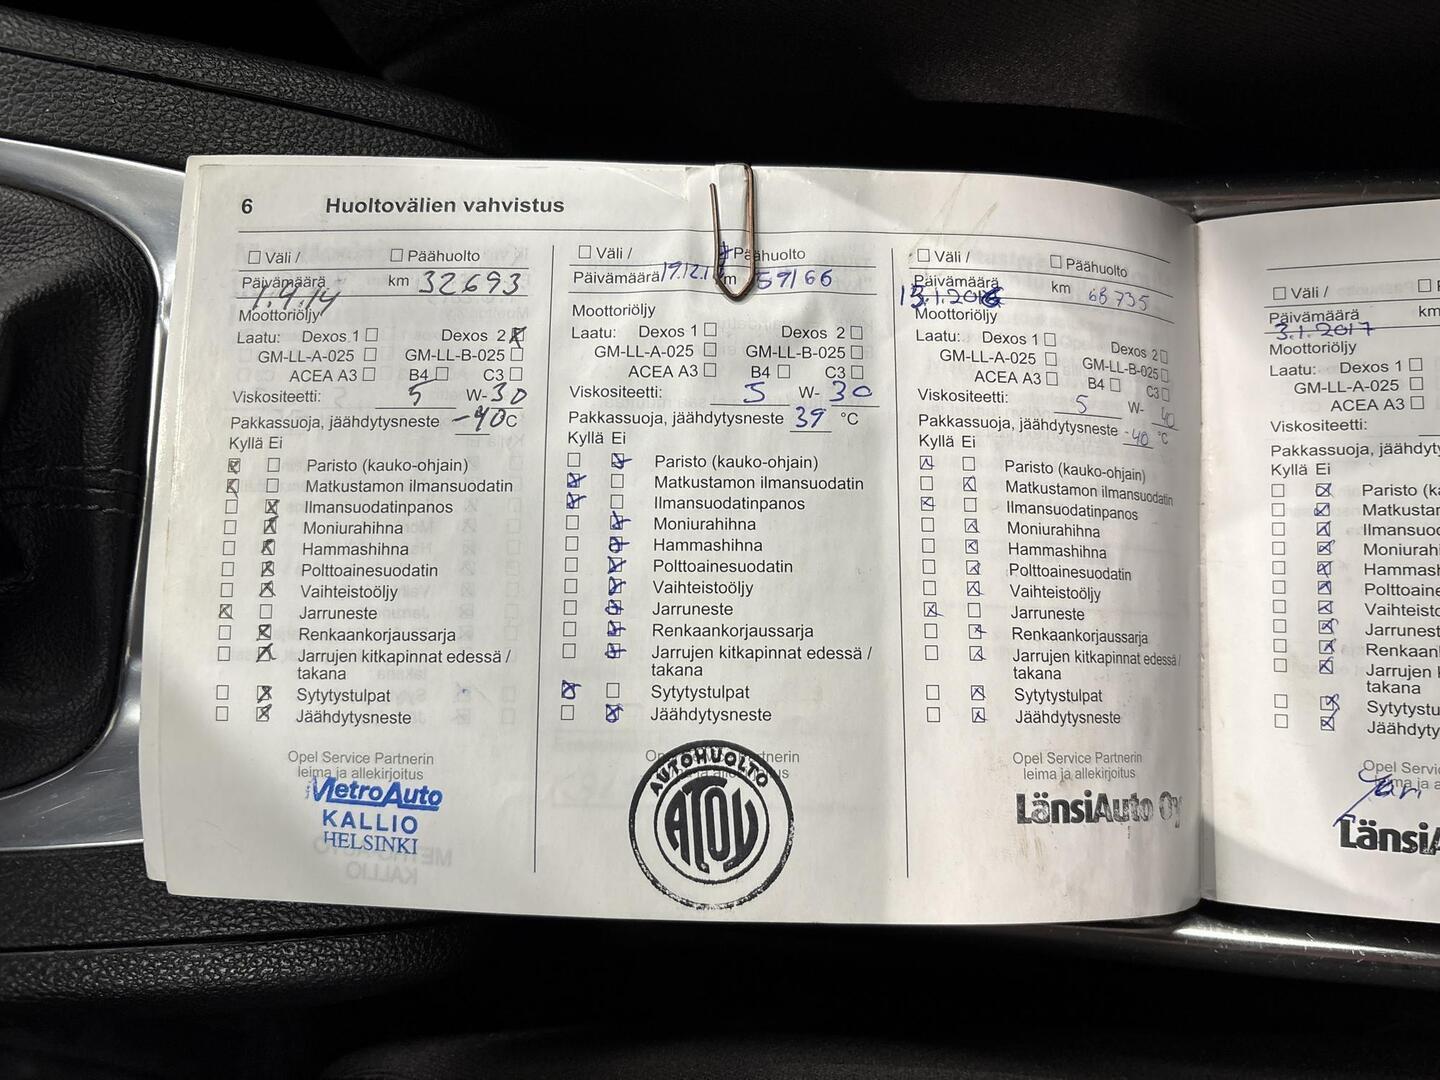 6 Huoltovälien vahvistus
Väli / Päähuolto
Päivämäärä km 32693
1.9.14
Moottoriöljy
Laatu: Dexos 1 Dexos 2
GM-LL-A-025 GM-LL-B-025
ACEA A3 B4 C3
Viskositeetti: 5 W-30
Pakkassuoja, jäähdytysneste -40°C
Kyllä Ei
Paristo (kauko-ohjain)
Matkustamon ilmansuodatin
Ilmansuodatinpanos
Moniurahihna
Hammashihna
Polttoainesuodatin
Vaihteistoöljy
Jarruneste
Renkaankorjaussarja
Jarrujen kitkapinnat edessä /
takana
Sytytystulpat
Jäähdytysneste
Opel Service Partnerin
leima ja allekirjoitus
MetroAuto
KALLIO
HELSINKI
Väli / Päähuolto
Päivämäärä km 59166
Moottoriöljy
Laatu: Dexos 1 Dexos 2
GM-LL-A-025 GM-LL-B-025
ACEA A3 B4 C3
Viskositeetti: 5 W-30
Pakkassuoja, jäähdytysneste 39 °C
Kyllä Ei
Paristo (kauko-ohjain)
Matkustamon ilmansuodatin
Ilmansuodatinpanos
Moniurahihna
Hammashihna
Polttoainesuodatin
Vaihteistoöljy
Jarruneste
Renkaankorjaussarja
Jarrujen kitkapinnat edessä /
takana
Sytytystulpat
Jäähdytysneste
AUTOHUOLTO
ATOY
Väli / Päähuolto
Päivämäärä km 68735
13.1.2016
Moottoriöljy
Laatu: Dexos 1 Dexos 2
GM-LL-A-025 GM-LL-B-025
ACEA A3 B4 C3
Viskositeetti: 5 W-40
Pakkassuoja, jäähdytysneste -40 °C
Kyllä Ei
Paristo (kauko-ohjain)
Matkustamon ilmansuodatin
Ilmansuodatinpanos
Moniurahihna
Hammashihna
Polttoainesuodatin
Vaihteistoöljy
Jarruneste
Renkaankorjaussarja
Jarrujen kitkapinnat edessä /
takana
Sytytystulpat
Jäähdytysneste
Opel Service Partnerin
leima ja allekirjoitus
LänsiAuto Oy
Väli /
Päivämäärä km
3.1.2017
Moottoriöljy
Laatu: Dexos 1
GM-LL-A-025
ACEA A3
Viskositeetti:
Pakkassuoja, jäähdy
Kyllä Ei
Paristo (ka
Matkustar
Ilmansuo
Moniurahi
Hammash
Polttoaine
Vaihteisto
Jarrunest
Renkaan
Jarrujen k
takana
Sytytystu
Jäähdyty
Opel Servic
Jari
LänsiA